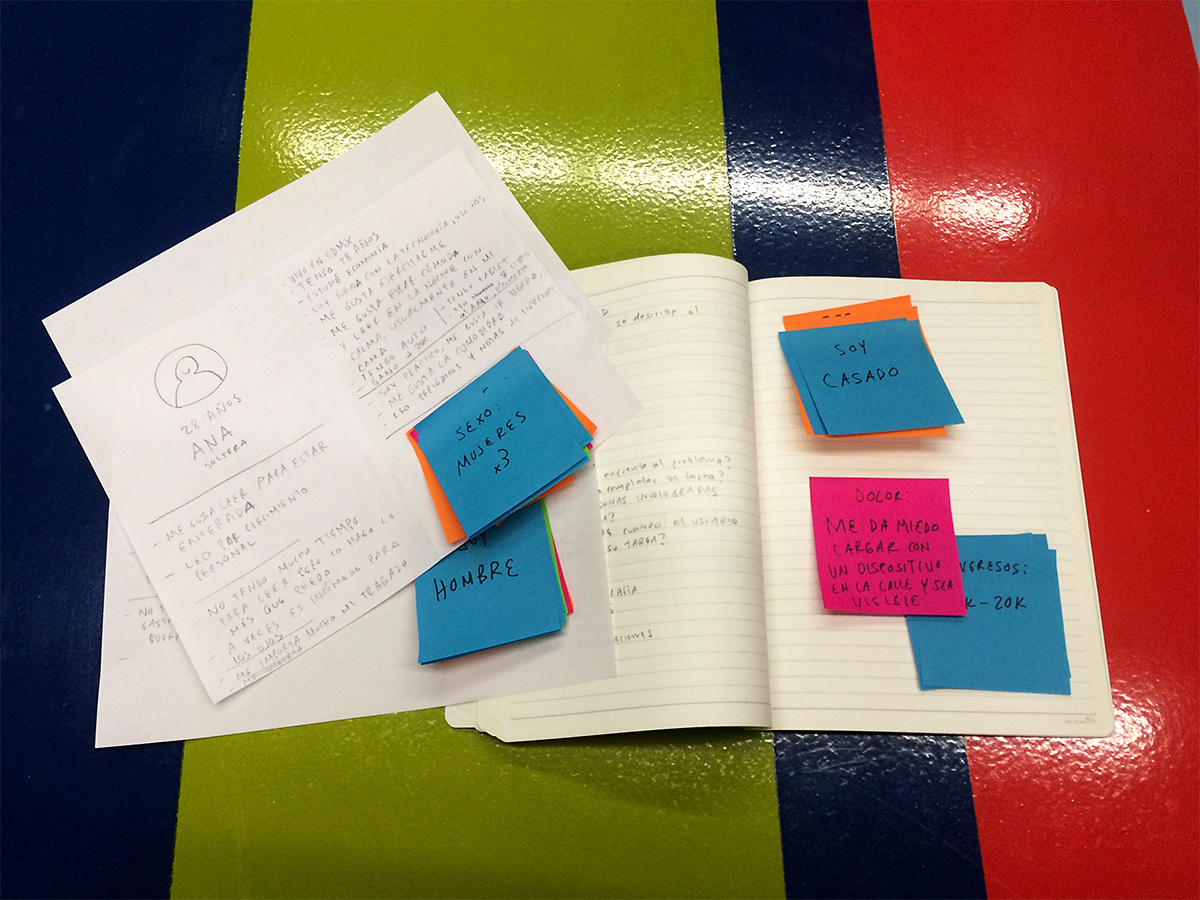 28 AÑOS
ANA
SOLTERA
- ME GUSTA LEER PARA ESTAR
ENTERADA
- LEO POR CRECIMIENTO
PERSONAL
NO TENGO MUCHO TIEMPO
PARA LEER PERO LO HAGO LO
MÁS QUE PUEDO
- A VECES ES INCÓMODO PARA
LOS OJOS
- ME IMPORTA MUCHO MI TRABAJO
- VIVO EN CDMX
- TENGO 28 AÑOS
- ESTUDIÉ ECONOMÍA
- SOY BUENA CON LA TECNOLOGÍA, USO IOS
- ME GUSTA EJERCITARME
- ME GUSTA ESTAR CÓMODA
Y LEER EN LA NOCHE CON
CALMA, USUALMENTE EN MI
CAMA
- TENGO AUTO
- TENGO TABLET
- GANO + 20K
- SOY PRÁCTICO, ME GUSTA IR LIGERO,
- ME GUSTA LA COMODIDAD
- LEO PERIÓDICOS Y NOTAS de INTERNET
NO
SEXO:
MUJERES
x3
SOY
HOMBRE
se describe el
enfrente al problema?
completa la tarea?
INVOLUCRADAS
CUANDO el USUARIO
SU TAREA?
- - -
SOY
CASADO
DOLOR:
ME DA MIEDO
CARGAR CON
UN DISPOSITIVO
EN LA CALLE Y SEA
VISIBLE
GRESOS:
K-20K